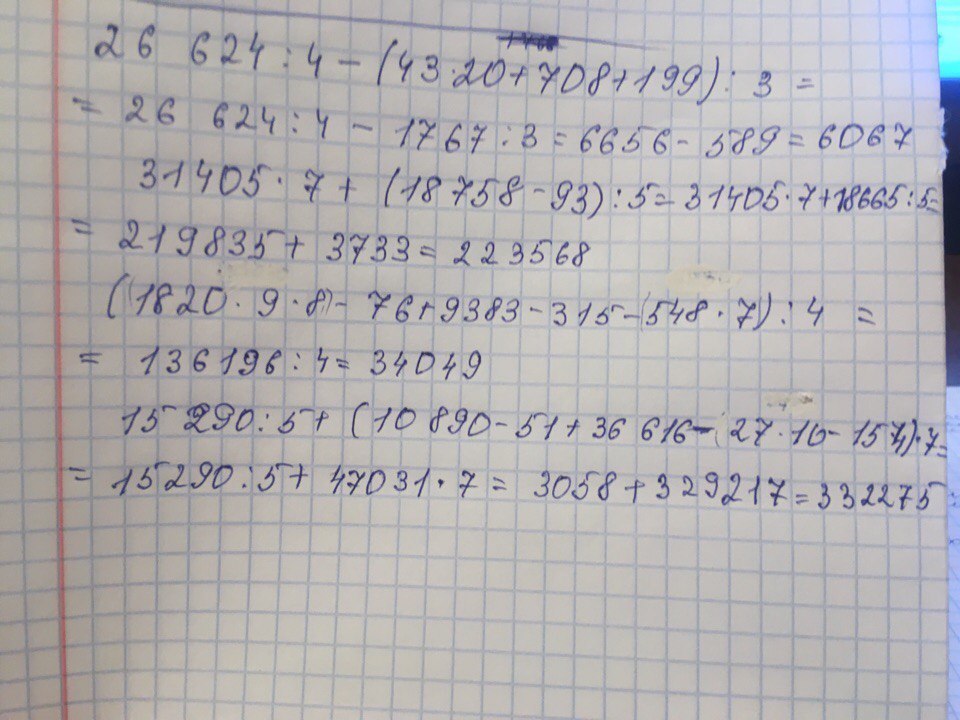 26 624 : 4 - (43·20+708+199) : 3 =
= 26 624 : 4 - 1767 : 3 = 6656 - 589 = 6067
31405 · 7 + (18758 - 93) : 5 = 31405·7+18665:5=
= 219835 + 3733 = 223568
(1820 · 9 · 8) - 76+9383-315-(548·7) : 4 =
= 136196 : 4 = 34049
15 290 : 5 + (10 890 - 51 + 36 616 - (27·10 - 154)·7=
= 15290 : 5 + 47031 · 7 = 3058 + 329217 = 332275